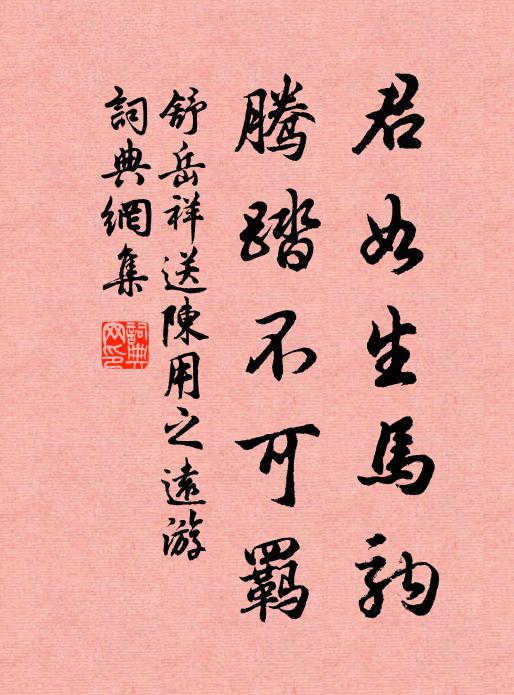 君如生馬駒
騰踏不可羈
舒岳祥送陳用之遠游
詞典網集
詞典
网印